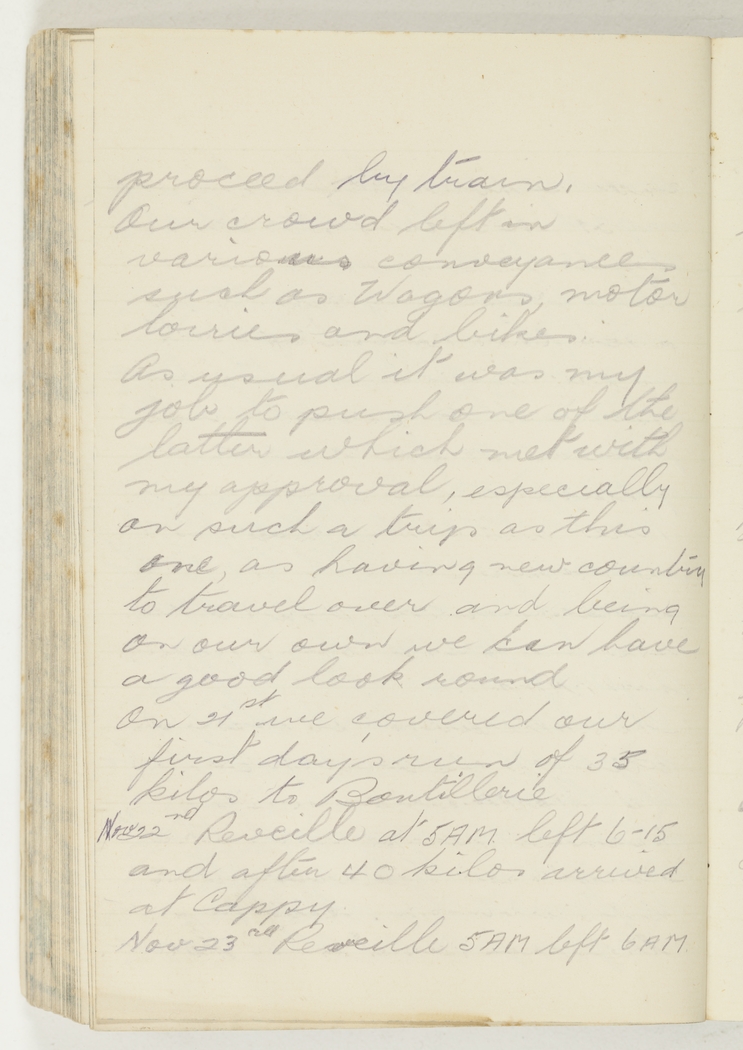 proceed by train.
Our crowd left in
various conveyances
such as Wagons, motor
lorries and bikes.
As usual it was my
job to push one of the
latter which met with
my approval, especially
on such a trip as this
one, as having new country
to travel over and being
on our own we can have
a good look round
On 21st we covered our
first day's run of 35
kilos to Bontillerie
Nov 22nd Reveille at 5AM left 6-15
and after 40 kilos arrived
at Cappy
Nov 23rd Reveille 5AM left 6AM.